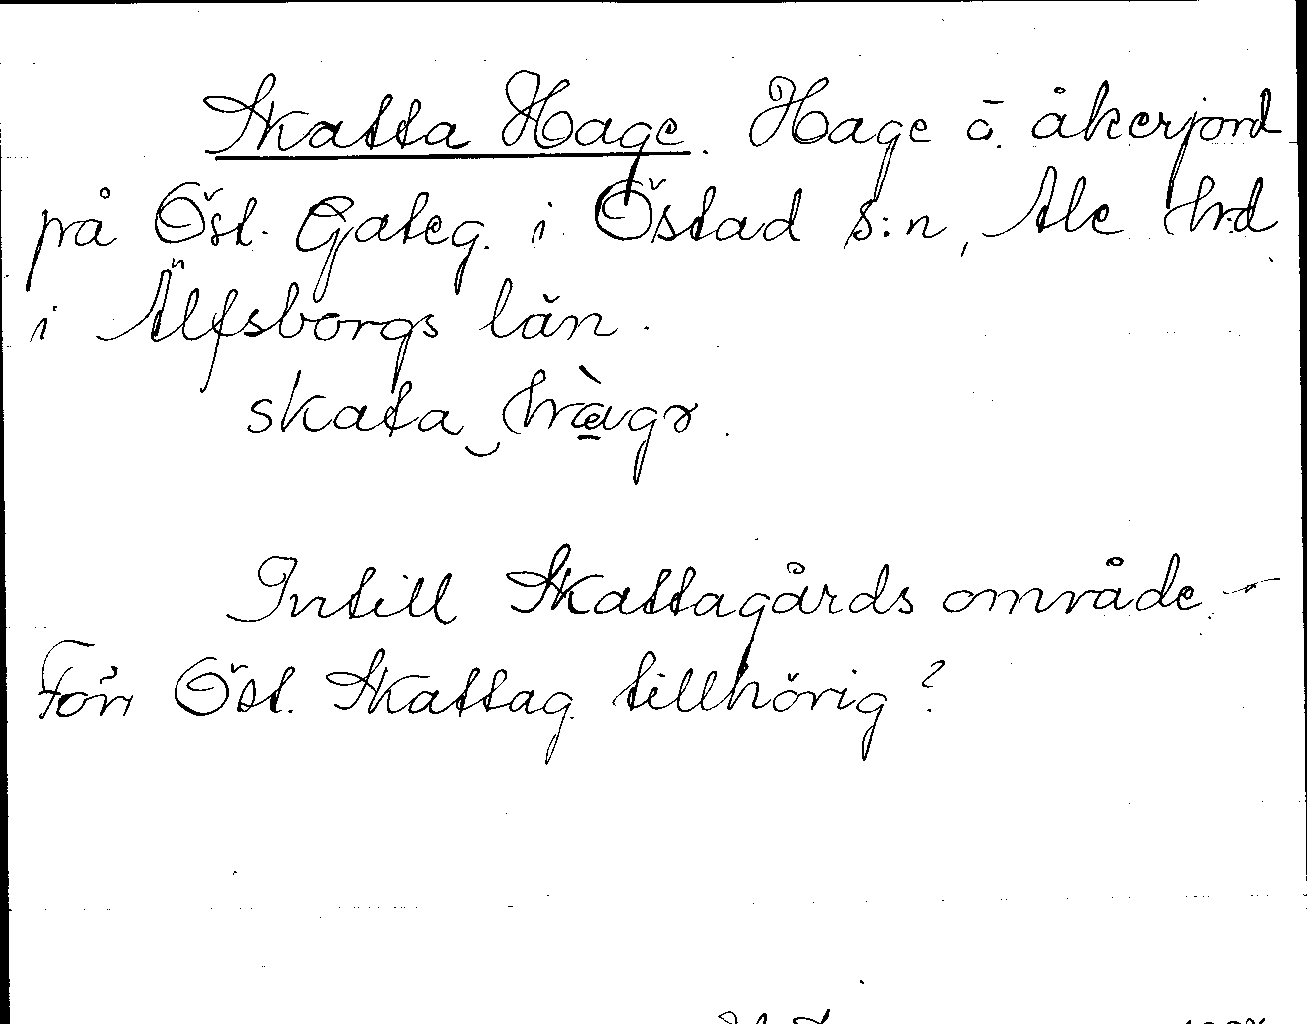 Skatta Hage. Hage ō. åkerjord
på Öst. Gateg. i Östad s:n, Ale hrd
i Älfsborgs län.
skata‿hàgə.
Intill Skattagårds område. –
Förr Öst. Skattag. tillhörig?